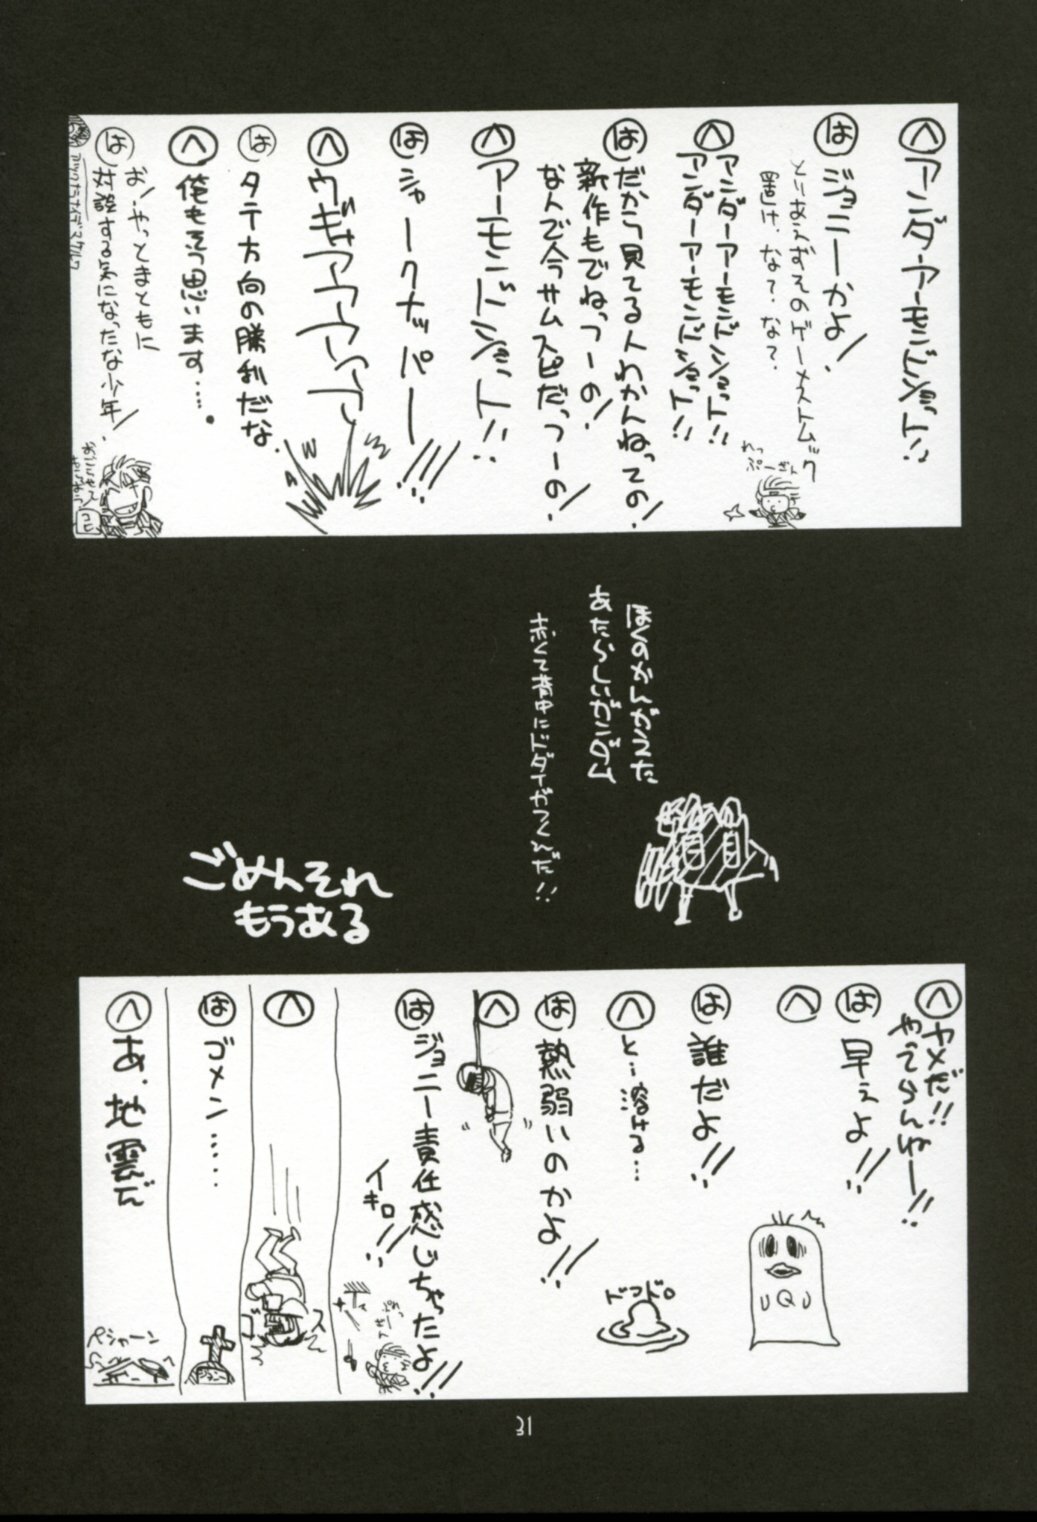 へ アンダーアーモンドショット!!
は ジョニーかよ!
とりあえずそのゲーメストムック
置け、な?、な?
れっ
ぷーざん
へ アンダーアーモンドショット!!
アンダーアーモンドショット!!
は だから見てる人わかんねっての!
新作もでねっつーの!
なんで今サムスピだっつーの!
へ アーモンドショット!!
は シャークナッパー!!!
へ ウギャアアアアアア
は タテ方向の勝利だな
へ 俺もそう思います……。
は お、やっとまともに
対談する気になったな少年!
ぼくのかんがえた
あたらしいガンダム
赤くて背中にドダイがつくんだ!!
ごめんそれ
もうある
へ ヤメだ!!
やってらんねー!!
は 早ぇよ!!
へ
は 誰だよ!!
へ と…溶ける…
ドロドロ
は 熱弱いのかよ!!
へ
は ジョニー責任感じちゃったよ!!
イキロ!!
へ
は ゴメン……
へ あ、地雲だ
ペシャーン
31